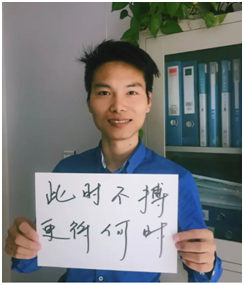 此时不搏
更待何时